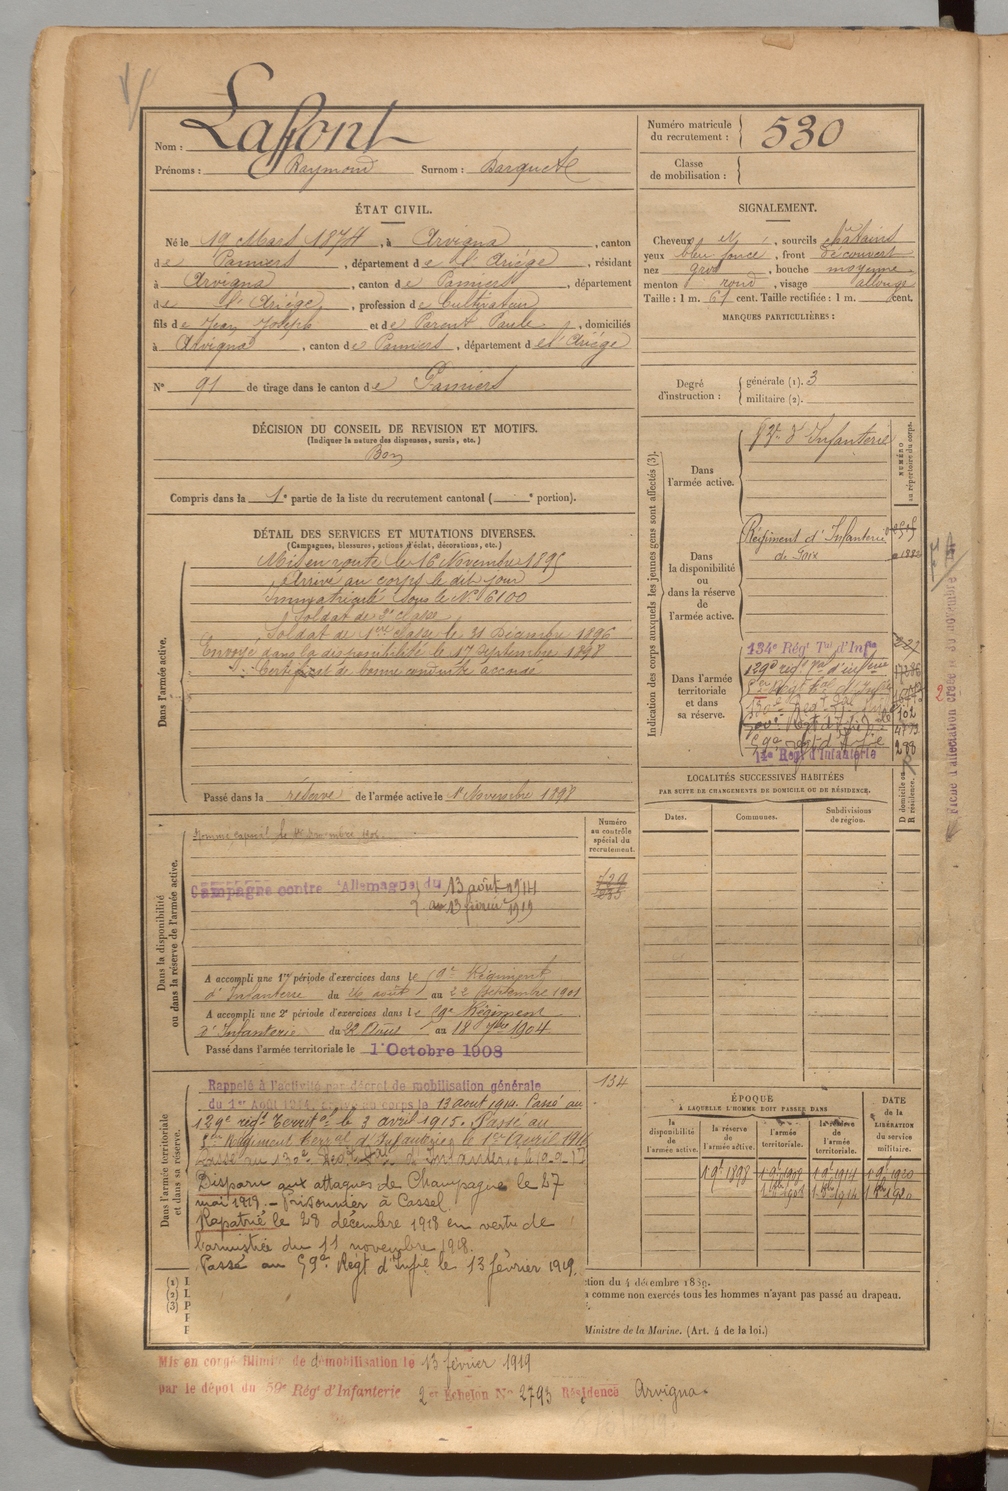 Nom : Laffont
Prénoms : Raymond Surnom : Barquet
Numéro matricule du recrutement : 530
Classe de mobilisation :
ÉTAT CIVIL.
Né le 19 Mars 1874, à Arvigna, canton
de Pamiers, département de l'Ariége, résidant
à Arvigna, canton de Pamiers, département
de l'Ariége, profession de Cultivateur
fils de Jean Joseph et de Parent Paule, domiciliés
à Arvigna, canton de Pamiers, département de l'Ariége
N° 91 de tirage dans le canton de Pamiers
SIGNALEMENT.
Cheveux et, sourcils châtains
yeux bleu foncé, front découvert
nez gros, bouche moyenne
menton rond, visage allongé
Taille : 1 m. 61 cent. Taille rectifiée : 1 m. cent.
MARQUES PARTICULIÈRES :
Degré d'instruction : générale (1). 3
militaire (2).
DÉCISION DU CONSEIL DE REVISION ET MOTIFS.
(Indiquer la nature des dispenses, sursis, etc.)
Bon
Compris dans la 1e partie de la liste du recrutement cantonal ( e portion).
DÉTAIL DES SERVICES ET MUTATIONS DIVERSES.
(Campagnes, blessures, actions d'éclat, décorations, etc.)
Dans l'armée active.
Mis en route le 16 Novembre 1895
Arrivé au corps le dit jour
Immatriculé sous le N° 6100
Soldat de 2e classe
Soldat de 1ère classe le 31 Décembre 1896
Envoyé dans la disponibilité le 17 septembre 1898
Certificat de bonne conduite accordé
Passé dans la réserve de l'armée active le 1er Novembre 1898
Indication des corps auxquels les jeunes gens sont affectés (3).
NUMÉRO au répertoire du corps.
Dans l'armée active.
d'Infanterie
Dans la disponibilité ou dans la réserve de l'armée active.
Régiment d'Infanterie
de Foix
Dans l'armée territoriale et dans sa réserve.
134e Rég Tal d'Infie
129e rég Tal d'infanterie
102
59e regt d'Infie
14e Regt d'Infanterie
LOCALITÉS SUCCESSIVES HABITÉES
PAR SUITE DE CHANGEMENTS DE DOMICILE OU DE RÉSIDENCE.
Dates. Communes. Subdivisions de région. D domicile ou R résidence.
Dans la disponibilité ou dans la réserve de l'armée active.
Numéro au contrôle spécial du recrutement.
Campagne contre l'Allemagne du 13 août 1914
au 13 février 1919
A accompli une 1re période d'exercices dans le 59e Régiment
d'Infanterie du 26 août au 22 Septembre 1901
A accompli une 2e période d'exercices dans le 59e Régiment
d'Infanterie du 22 Août au 18 7bre 1904
Passé dans l'armée territoriale le 1 Octobre 1908
Dans l'armée territoriale et dans sa réserve.
134
Rappelé à l'activité par décret de mobilisation générale
du 1er Août 1914. Arrivé au corps le 13 aout 1914. Passé au
129e régt Territal le 3 avril 1915. Passé au
Régiment Territal d'Infanterie le 1er Avril 1916
Passé au 130e Regt Tal d'Infanterie le 10-9-17
Disparu aux attaques de Champagne le 27
mai 1918. - Prisonnier à Cassel
Rapatrié le 28 décembre 1918 en vertu de
l'armistice du 11 novembre 1918.
Passé au 59e Régt d'Infie le 13 février 1919.
ÉPOQUE
À LAQUELLE L'HOMME DOIT PASSER DANS
la disponibilité de l'armée active. la réserve de l'armée active. l'armée territoriale. la réserve de l'armée territoriale.
DATE de la LIBÉRATION du service militaire.
1 9e 1898 1 9e 1908 1 9e 1914 1 9e 1920
(1)
(2)
(3)
tion du 4 décembre 1889.
comme non exercés tous les hommes n'ayant pas passé au drapeau.
Ministre de la Marine. (Art. 4 de la loi.)
Mis en congé illimité de démobilisation le 13 février 1919
par le dépôt du 59e Rég d'Infanterie 2e Echelon N° 2793 Résidence Arvigna.